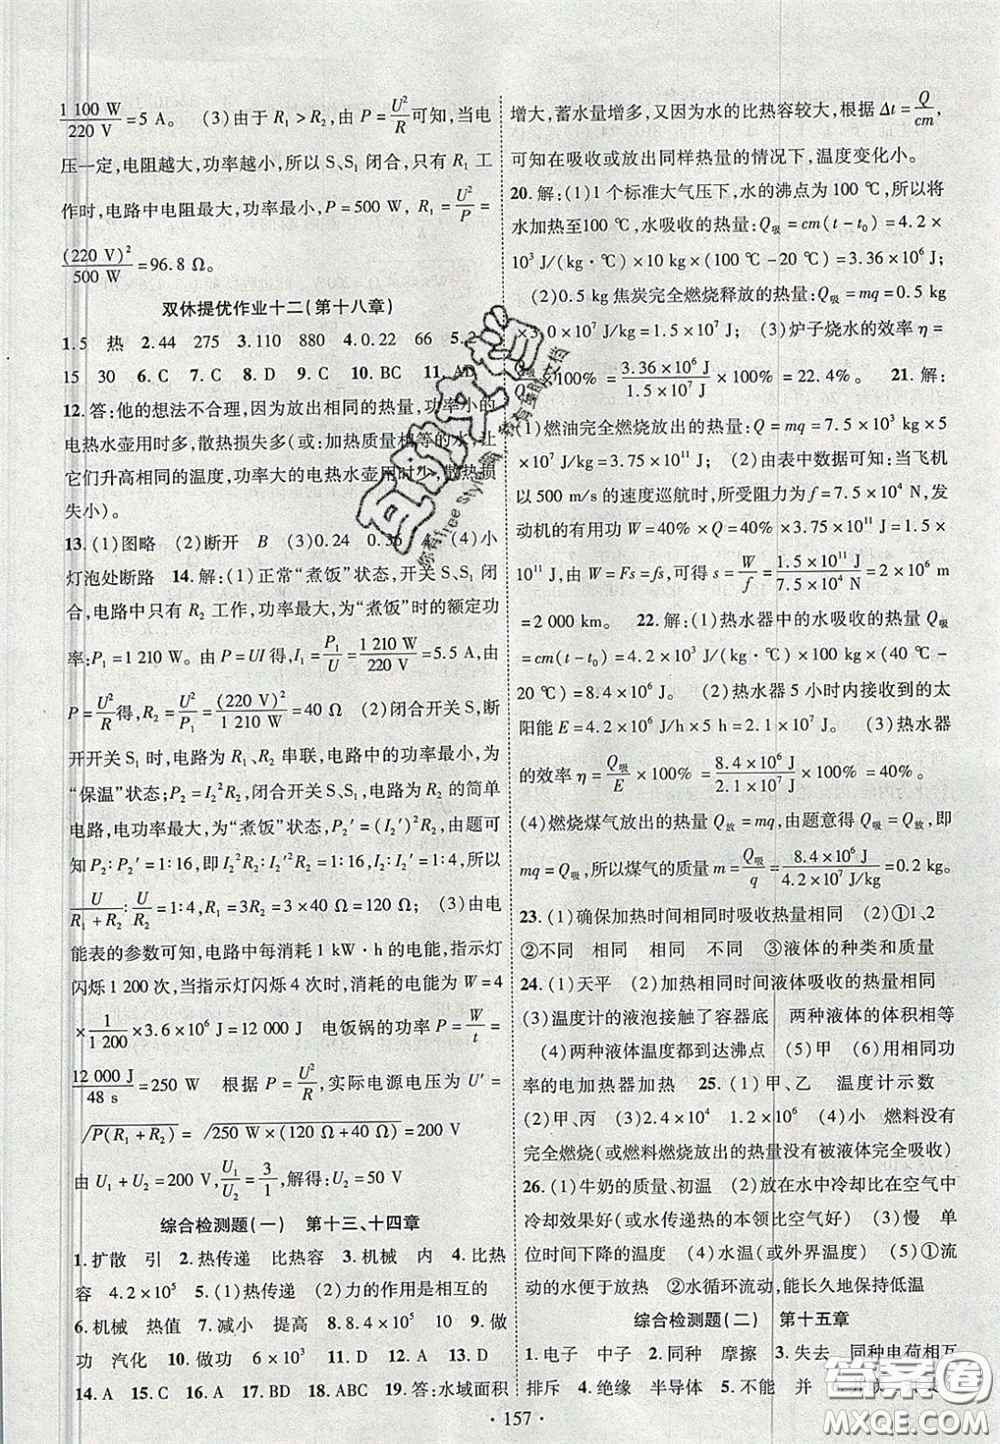 1 100 W/220 V=5 A。 (3)由于 R₁>R₂,由 P=U²/R可知,当电
压一定,电阻越大,功率越小,所以 S、S₁ 闭合,只有 R₁ 工
作时,电路中电阻最大,功率最小,P=500 W, R₁=U²/P=
(220 V)²/500 W=96.8 Ω。
双休提优作业十二(第十八章)
1.5 热 2.44 275 3.110 880 4.0.22 66 5.2
15 30 6.C 7.C 8.D 9.C 10.BC 11.AD
12.答:他的想法不合理,因为放出相同的热量,功率小的
电热水壶用时多,散热损失多(或:加热质量相等的水,让
它们升高相同的温度,功率大的电热水壶用时少,散热损
失小)。
13.(1)图略 (2)断开 B (3)0.24 0.36 (4)小
灯泡处断路 14.解:(1)正常“煮饭”状态,开关 S、S₁ 闭
合,电路中只有 R₂ 工作,功率最大,为“煮饭”时的额定功
率:P₁=1 210 W。由 P=UI得,I=P₁/U=1 210 W/220 V=5.5 A,由
P=U²/R得,R₂=U²/P₁=(220 V)²/1 210 W=40 Ω (2)闭合开关 S,
断开开关 S₁ 时,电路为 R₁、R₂ 串联,电路中的功率最小,为
“保温”状态;P₂=I₂²R₂,闭合开关 S、S₁,电路为 R₂ 的简单
电路,电功率最大,为“煮饭”状态,P₂′=(I₂′)²R₂,由题可
知P₂:P₂′=1:16,即I₂²R₂:I₂′²R₂=1:16,I₂:I₂′=1:4,所以
U/(R₁+R₂):U/R₂=1:4,R₁=3R₂=3×40 Ω=120 Ω; (3)由电
能表的参数可知,电路中每消耗 1 kW·h 的电能,指示灯
闪烁 1 200 次,当指示灯闪烁 4 次时,消耗的电能为 W=4
×1/1 200×3.6×10⁶ J=12 000 J 电饭锅的功率 P=W/t=
12 000 J/48 s=250 W 根据 P=U²/R,实际电源电压为 U′=
√P(R₁+R₂)=√250 W×(120 Ω+40 Ω)=200 V
由 U₁+U₂=200 V,U₁/U₂=3/1,解得:U₂=50 V
综合检测题(一) 第十三、十四章
1.扩散 引 2.热传递 比热容 3.机械 内 4.比热
容 4.2×10⁵ 5.(1)热传递 (2)力的作用是相互的
6.机械 热值 7.减小 提高 8.8.4×10⁵ 9.做
功 汽化 10.做功 6×10³ 11.D 12.B 13.D
14.A 15.A 16.A 17.BD 18.ABC 19.答:水域面积
增大,蓄水量增多,又因为水的比热容较大,根据 Δt=Q/cm,
可知在吸收或放出同样热量的情况下,温度变化小。
20.解:(1)1 个标准大气压下,水的沸点为 100 ℃,所以将
水加热至100 ℃,水吸收的热量:Q吸=cm(t-t₀)=4.2×
10³ J/(kg·℃)×10 kg×(100 ℃-20 ℃)=3.36×10⁶ J;
(2)0.5 kg 焦炭完全燃烧释放的热量:Q放=mq=0.5 kg
×3.0×10⁷ J/kg=1.5×10⁷ J; (3)炉子烧水的效率 η=
×100%=3.36×10⁶ J/1.5×10⁷ J×100%=22.4%。 21.解:
(1)燃油完全燃烧放出的热量:Q=mq=7.5×10³ kg×5×
10⁷ J/kg=3.75×10¹¹ J; (2)由表中数据可知:当飞机
以 500 m/s 的速度巡航时,所受阻力为 f=7.5×10⁴ N,发
动机的有用功 W=40%×Q=40%×3.75×10¹¹ J=1.5×
10¹¹ J,由 W=Fs=fs,可得 s=W/f=1.5×10¹¹ J/7.5×10⁴ N=2×10⁶ m
=2 000 km。 22.解:(1)热水器中的水吸收的热量 Q吸
=cm(t-t₀)=4.2×10³ J/(kg·℃)×100 kg×(40 ℃-
20 ℃)=8.4×10⁶ J。 (2)热水器 5 小时内接收到的太
阳能 E=4.2×10⁶ J/h×5 h=2.1×10⁷ J。 (3)热水器
的效率 η=Q吸/E×100%=8.4×10⁶ J/2.1×10⁷ J×100%=40%。
(4)燃烧煤气放出的热量 Q放=mq,由题意得 Q吸=Q放,即
mq=Q吸,所以煤气的质量 m=Q吸/q=8.4×10⁶ J/4.2×10⁷ J/kg=0.2 kg。
23.(1)确保加热时间相同时吸收热量相同 (2)①1、2
②不同 相同 相同 不同 ③液体的种类和质量
24.(1)天平 (2)加热相同时间液体吸收的热量相同
(3)温度计的液泡接触了容器底 两种液体的体积相等
(4)两种液体温度都到达沸点 (5)甲 (6)用相同功
率的电加热器加热 25.(1)甲、乙 温度计示数
(2)甲、丙 (3)2.4×10⁴ 1.2×10⁶ (4)小 燃料没有
完全燃烧(或燃料燃烧放出的热量没有被液体完全吸收)
26.(1)牛奶的质量、初温 (2)放在水中冷却比在空气中
冷却效果好(或水传递热的本领比空气好) (3)慢 单
位时间下降的温度 (4)水温(或外界温度) (5)①流
动的水便于放热 ②水循环流动,能长久地保持低温
综合检测题(二) 第十五章
1.电子 中子 2.同种 摩擦 3.失去 同种电荷相互
排斥 4.绝缘 半导体 5.不能 并
· 157 ·
答案圈
MXQE.COM